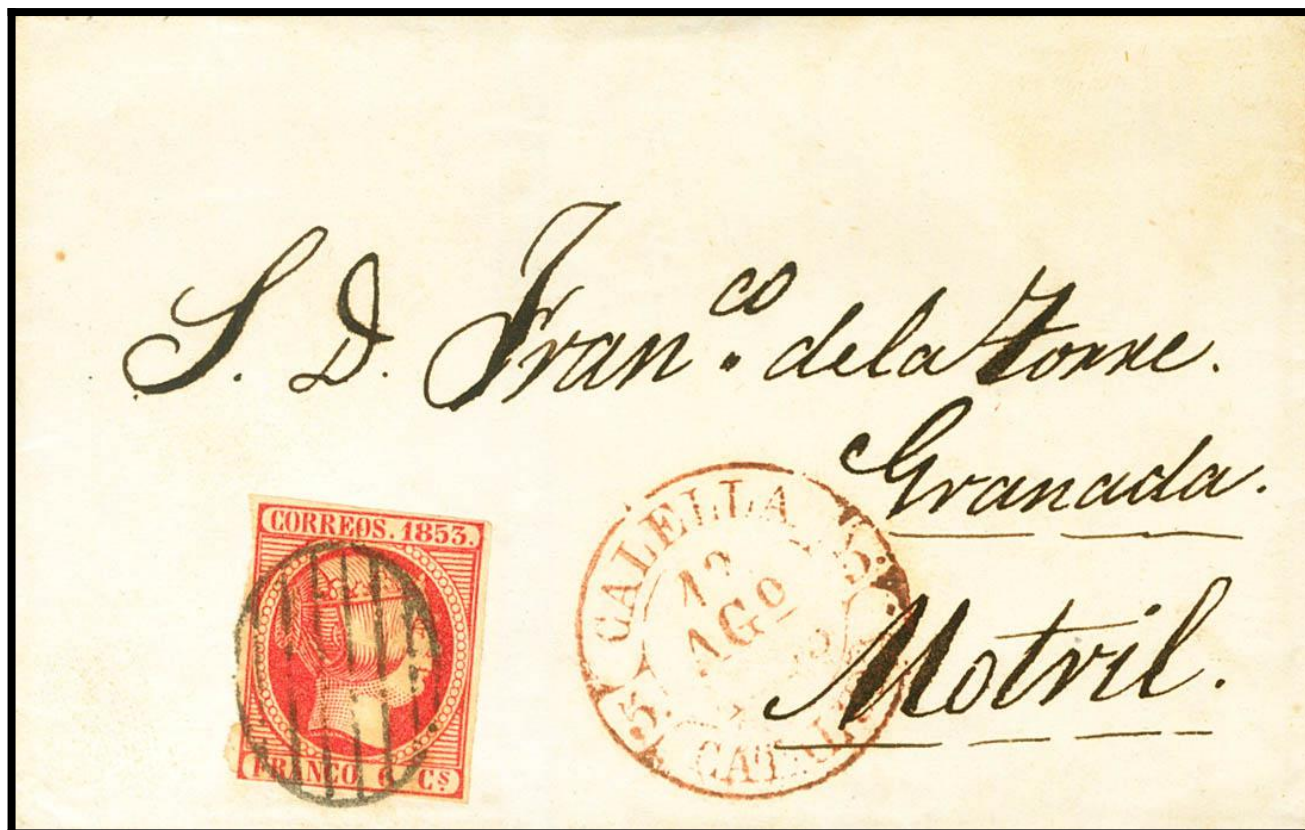 S. D. Fran.co de la Torre.
Granada.
Motril.
CORREOS. 1853.
FRANCO. 6 Cs
CALELLA
AGO
CAT